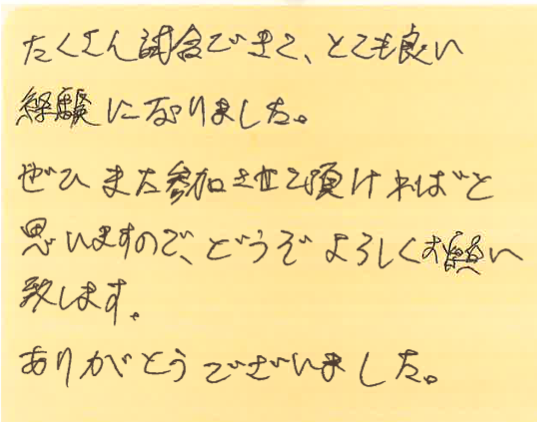 たくさん試合できて、とても良い
経験になりました。
ぜひまた参加させて頂ければと
思いますので、どうぞよろしくお願い
致します。
ありがとうございました。